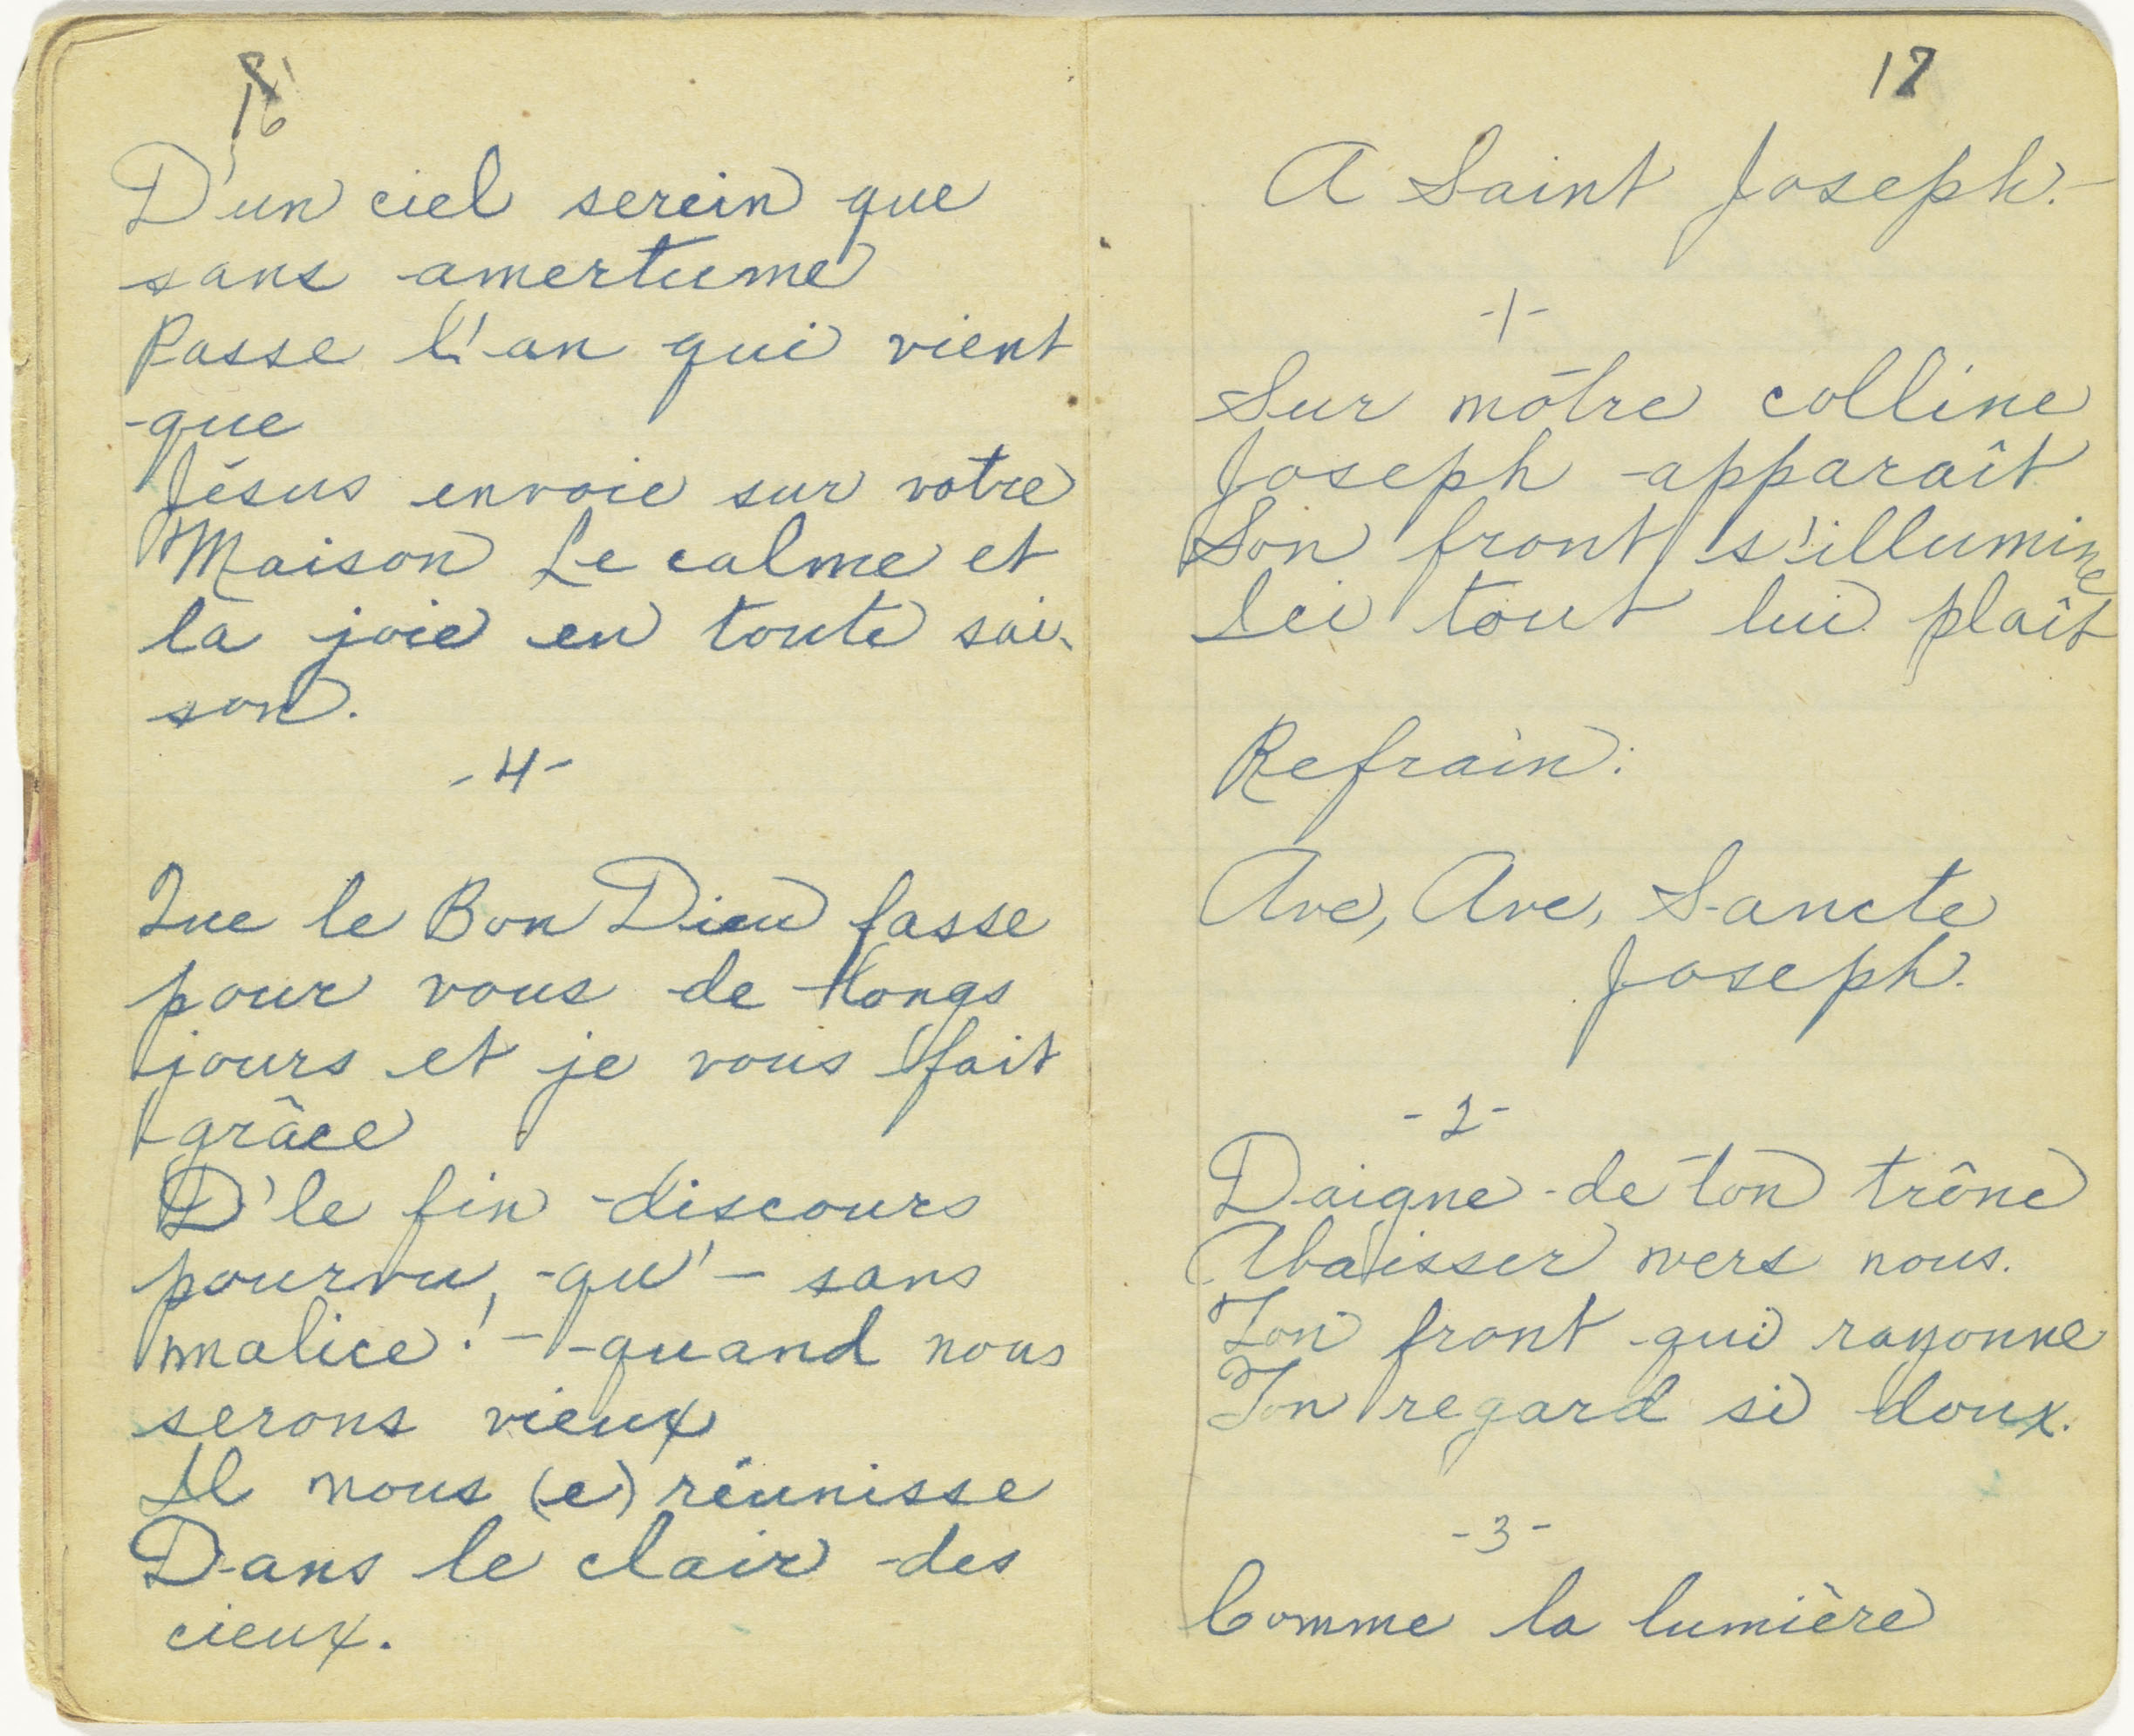 16
D'un ciel serein que
sans amertume
Passe l'an qui vient
que
Jésus envoie sur votre
Maison Le calme et
la joie en toute sai-
son.
-4-
Que le Bon Dieu fasse
pour vous de longs
jours et je vous fait
grâce
D'le fin discours
pourvu, qu' - sans
malice! - quand nous
serons vieux
Il nous (e) réunisse
Dans le clair des
cieux.
17
A Saint Joseph.-
-1-
Sur nôtre colline
Joseph apparaît
Son front s'illumine
Ici tout lui plaît
Refrain:
Ave, Ave, Sancte
Joseph.
-2-
Daigne de ton trône
Abaisser vers nous.
Ton front qui rayonne
Ton regard si doux.
-3-
Comme la lumière